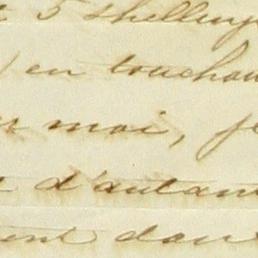 5 shellings
en toucha
moi, je
d'autan
ent dans